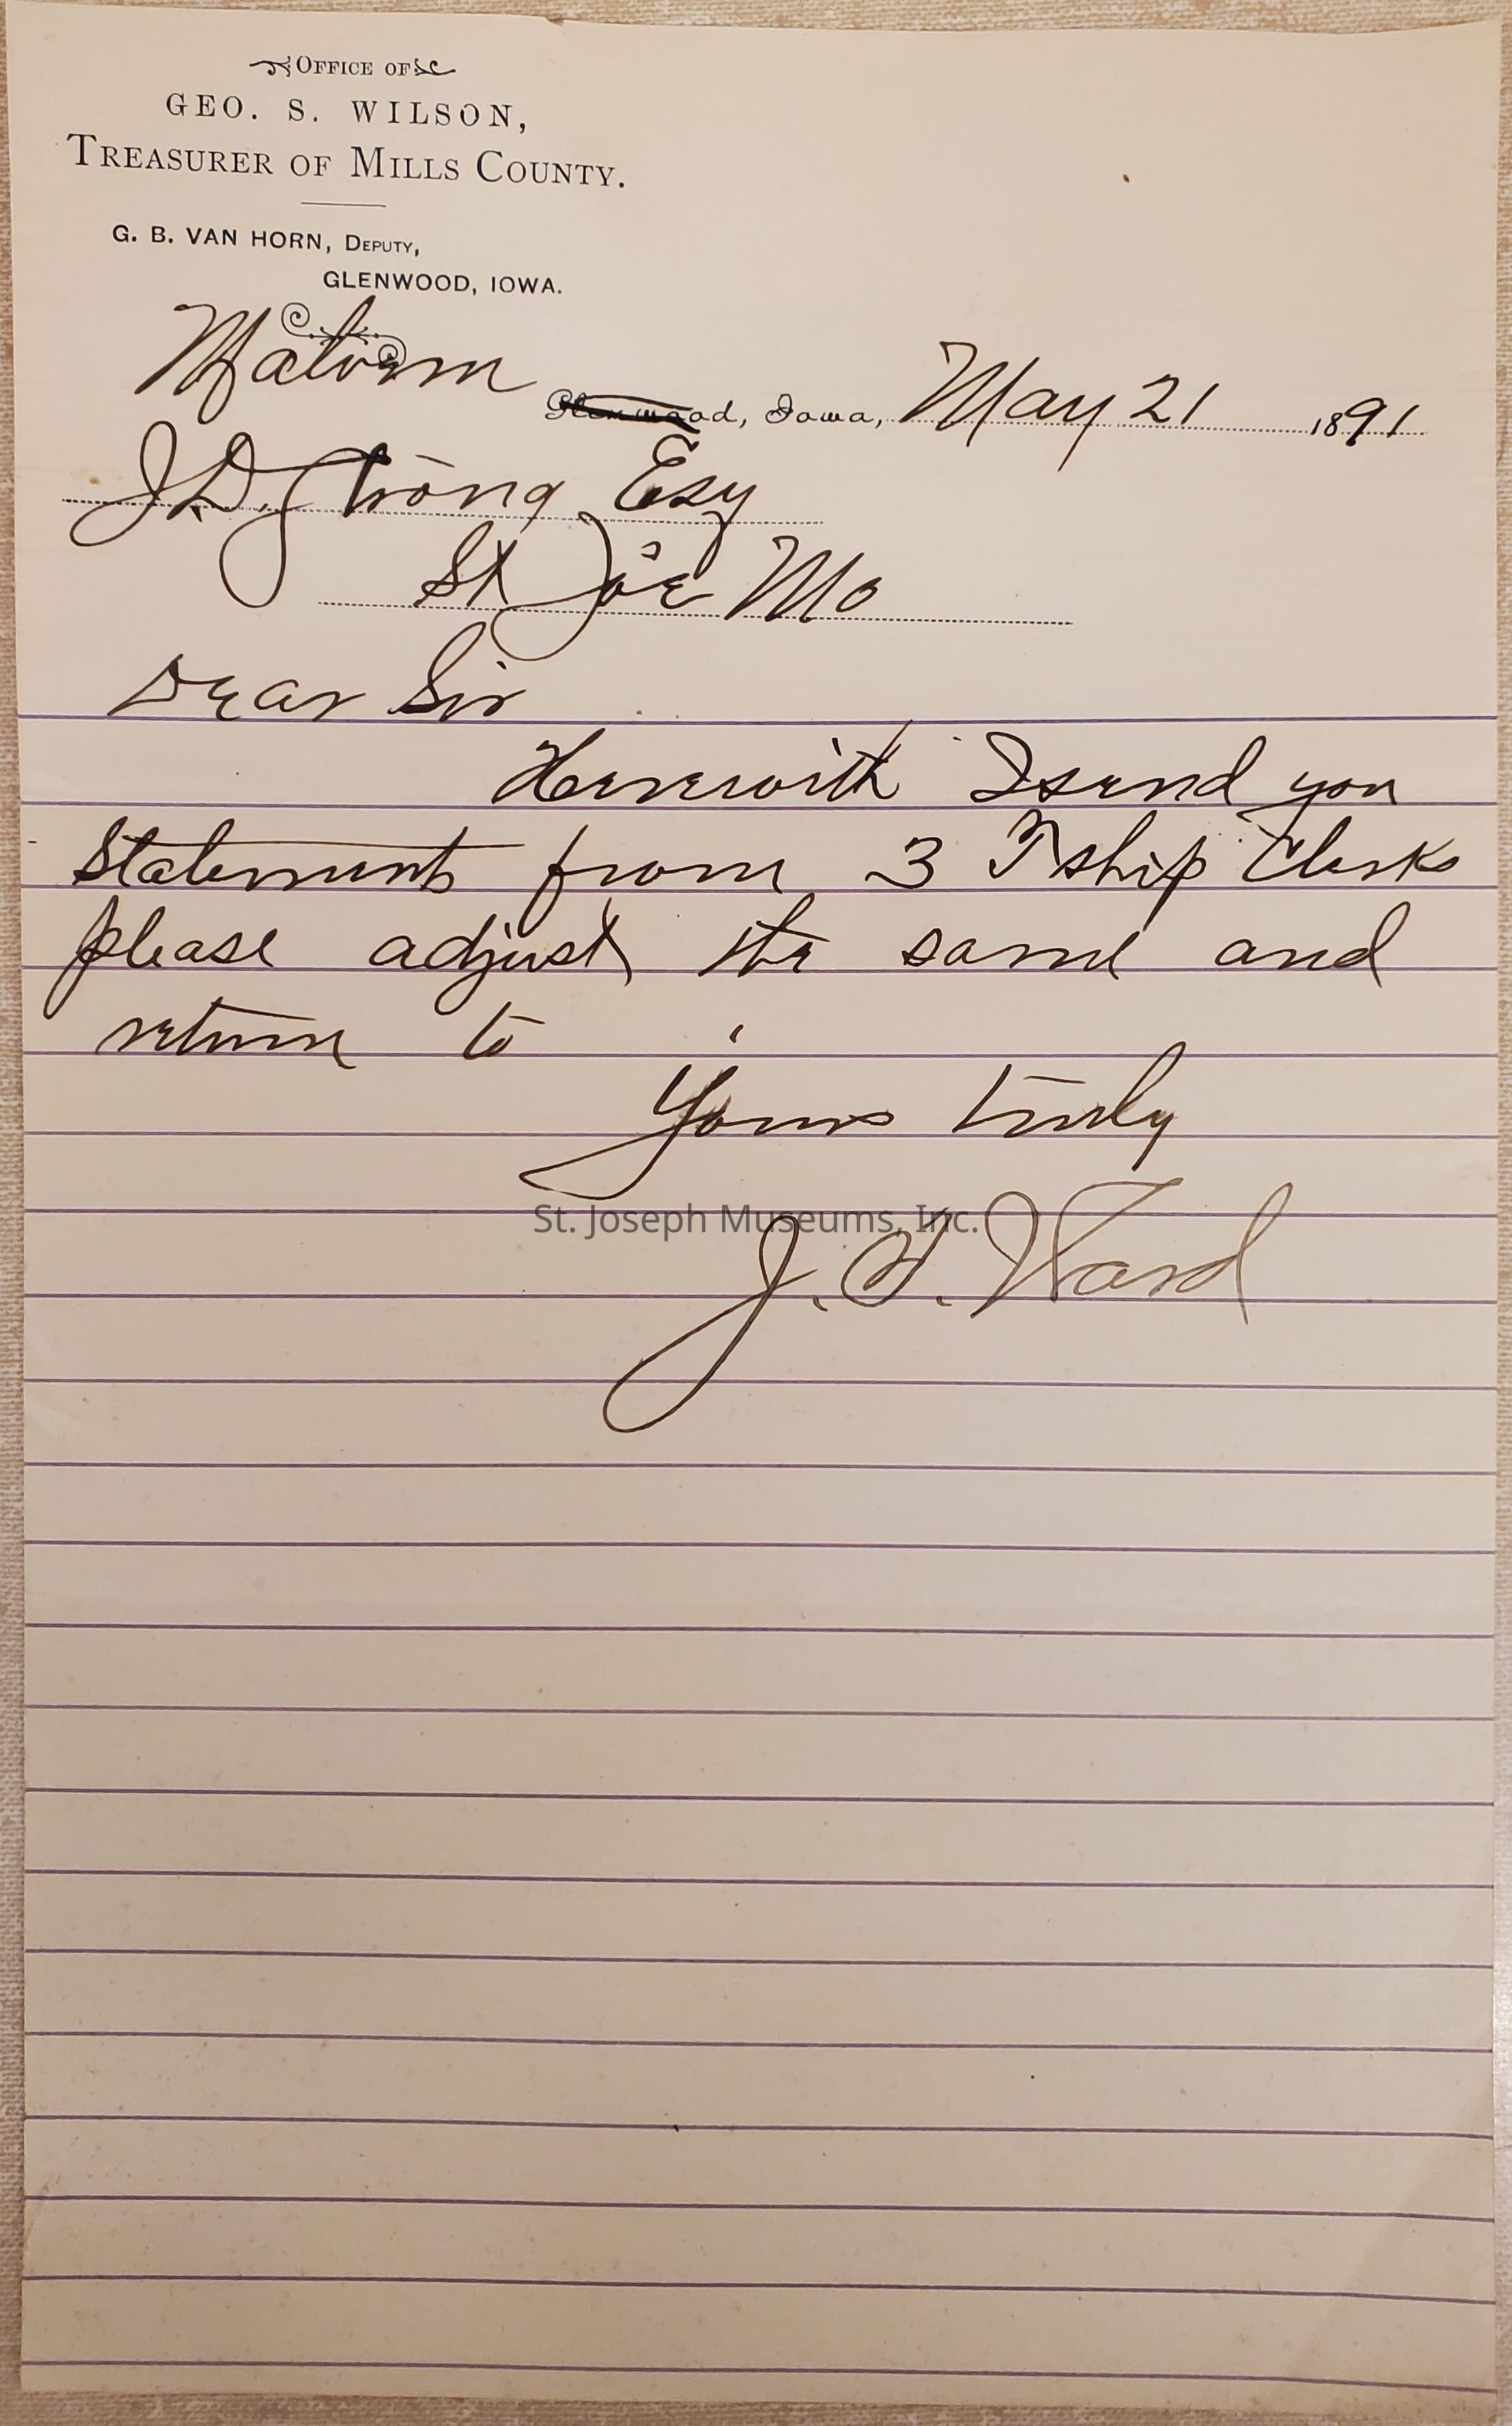 OFFICE OF
GEO. S. WILSON,
TREASURER OF MILLS COUNTY.
G. B. VAN HORN, DEPUTY,
GLENWOOD, IOWA.
Malvern
Glenwood, Iowa, May 21 1891
J. D. Strong Esq
St Joe Mo
Dear Sir
Herewith I send you
Statements from 3 Tship Clerks
please adjust the same and
return to
Yours truly
St. Joseph Museums, Inc.
J. Ward